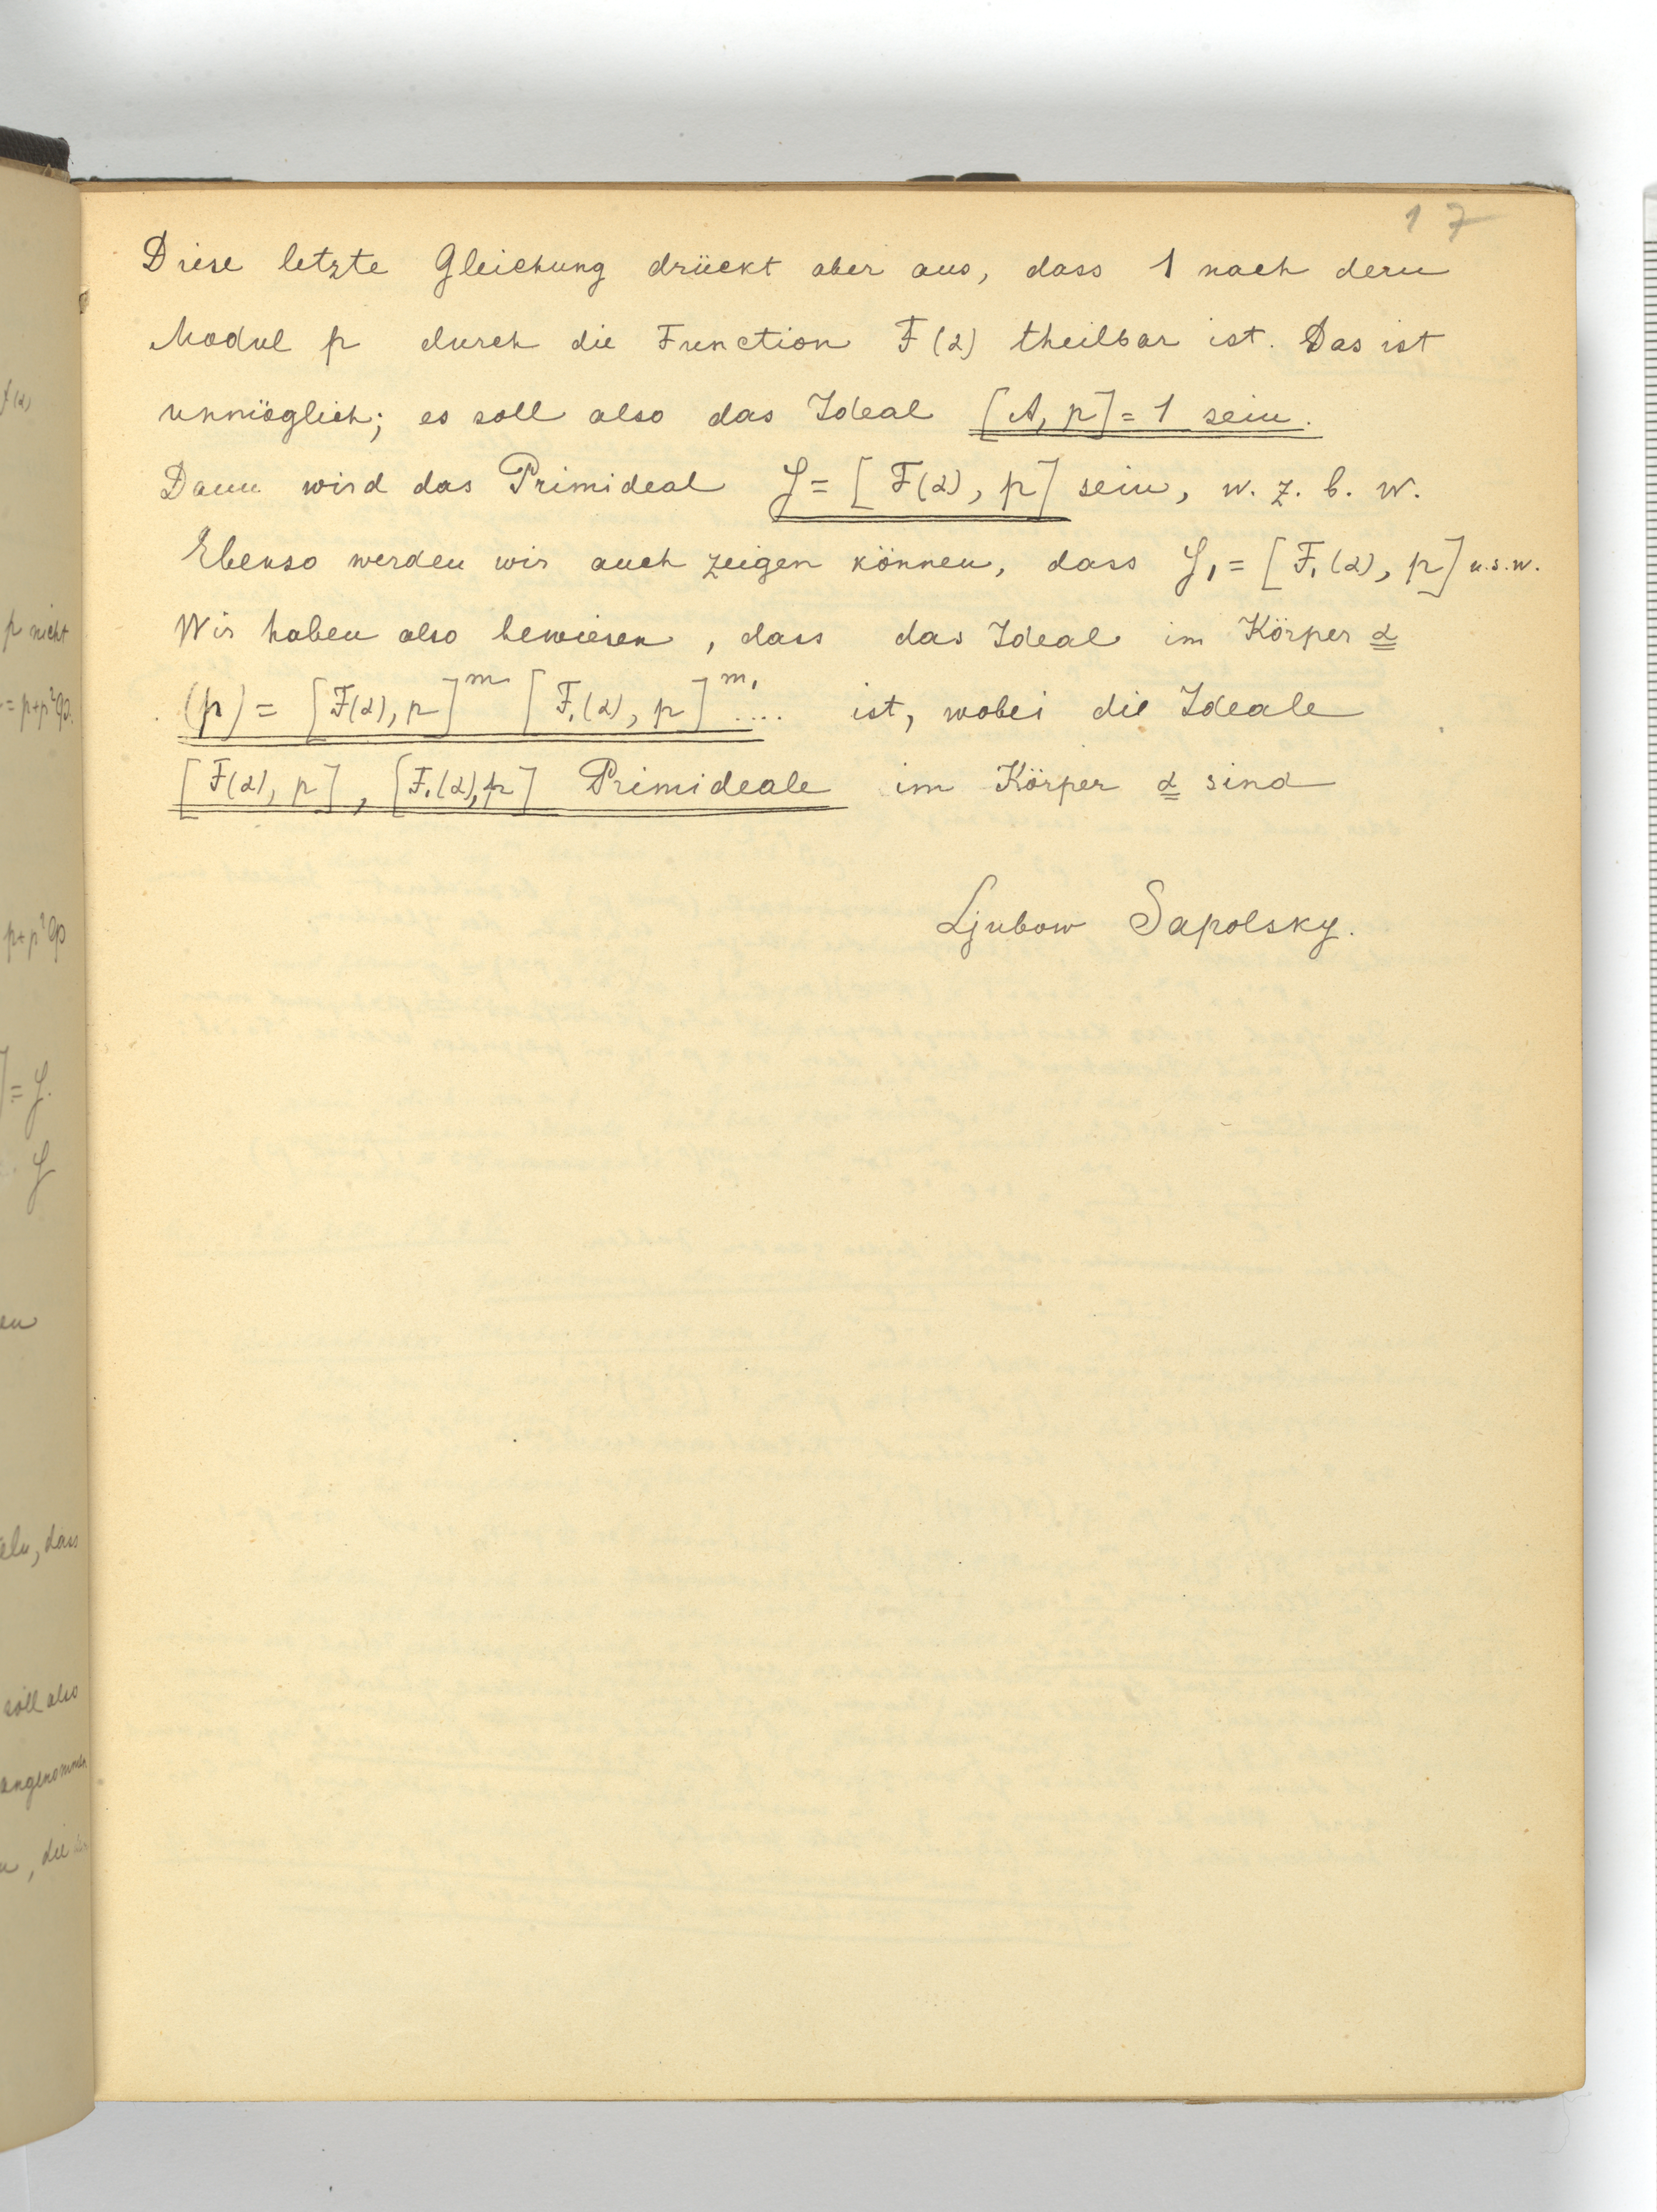 17
Diese letzte Gleichung drückt aber aus, dass 1 nach dem
Modul p durch die Function F(α) theilbar ist. Das ist
unmöglich; es soll also das Ideal [A, p] = 1 sein.
Dann wird das Primideal 𝔭 = [F(α), p] sein, w. z. b. w.
Ebenso werden wir auch zeigen können, dass 𝔭₁ = [F₁(α), p] u.s.w.
Wir haben also bewiesen, dass das Ideal im Körper α
(p) = [F(α), p]ᵐ [F₁(α), p]ᵐ¹ .... ist, wobei die Ideale
[F(α), p], [F₁(α), p] Primideale im Körper α sind
Ljubow Sapolsky.
p nicht
= p+p²φ.
p+p²φ
] = 𝔭.
𝔭
en
eln, dass
soll also
angenommen
, die